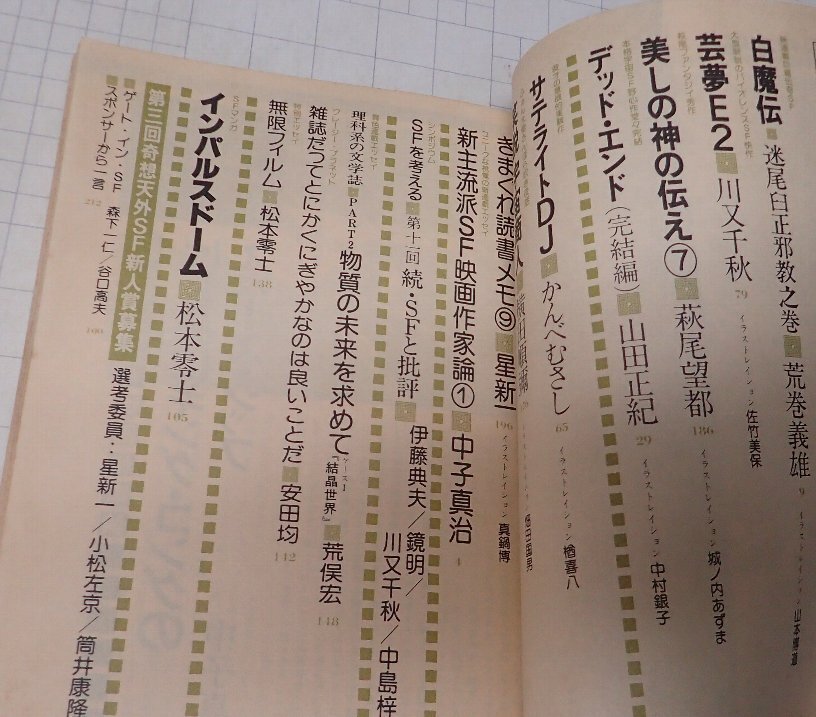 白魔伝 迷尾臼正邪教之巻 荒巻義雄 9 イラストレイション 山本博通
芸夢E2 川又千秋 79 イラストレイション 佐竹美保
美しの神の伝え⑦ 萩尾望都 186 イラストレイション 城ノ内あずま
デッド・エンド(完結編) 山田正紀 29 イラストレイション 中村銀子
サテライトDJ かんべむさし 65 イラストレイション 楢喜八
ユニークな視角の新連載エッセイ
きまぐれ読書メモ⑨ 星新一 196 イラストレイション 真鍋博
新主流派SF映画作家論① 中子真治 4
シンポジウム
SFを考える 第十一回 続・SFと批評 伊藤典夫/鏡明/
川又千秋/中島梓
理科系の文学誌 PART2 物質の未来を求めて ケース1「結晶世界」 荒俣宏 148
クレージー・プラネット
雑誌だってとにかくにぎやかなのは良いことだ 安田均 142
特別エッセイ
無限フィルム 松本零士 138
SFマンガ
インパルスドーム 松本零士 105
第三回奇想天外SF新人賞募集 100 選考委員:星新一/小松左京/筒井康隆
ゲート・イン・SF 森下一仁/谷口高夫
スポンサーから一言 212